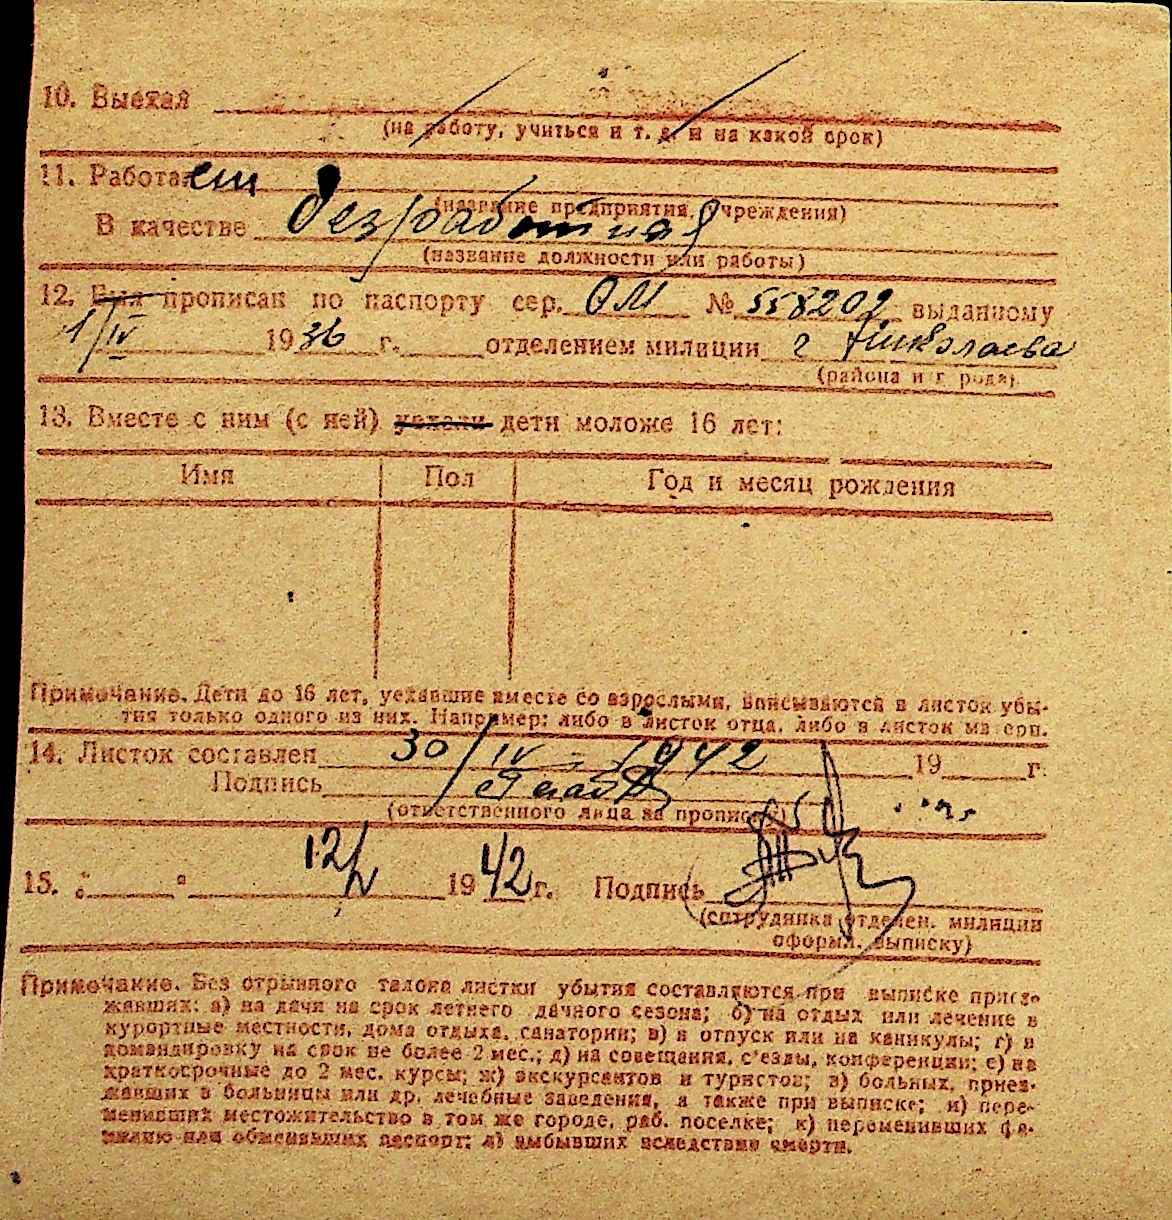 10. Выехал
(на работу, учиться и т. д. и на какой срок)
11. Работает
(название предприятия, учреждения)
В качестве безработная
(название должности или работы)
12. Был прописан по паспорту сер. ОМ № 558202 выданному
1/IV 1936 г. отделением милиции г Николаева
(района и города)
13. Вместе с ним (с ней) уехали дети моложе 16 лет:
Имя Пол Год и месяц рождения
Примечание. Дети до 16 лет, уехавшие вместе со взрослыми, вписываются в листок убы-
тия только одного из них. Например: либо в листок отца, либо в листок матери.
14. Листок составлен 30/IV - 1942 19 г.
Подпись
(ответственного лица за прописку)
15. „ " 12/V 1942 г. Подпись
(сотрудника отделен. милиции
оформ. выписку)
Примечание. Без отрывного талона листки убытия составляются при выписке приез-
жавших: а) на дачи на срок летнего дачного сезона; б) на отдых или лечение в
курортные местности, дома отдыха, санатории; в) в отпуск или на каникулы; г) в
командировку на срок не более 2 мес.; д) на совещания, с'езды, конференции; е) на
краткосрочные до 2 мес. курсы; ж) экскурсантов и туристов; з) больных, приез-
жавших в больницы или др. лечебные заведения, а также при выписке; и) пере-
менивших местожительство в том же городе, раб. поселке; к) переменивших фа-
милию или обменявших паспорт; л) выбывших вследствие смерти.